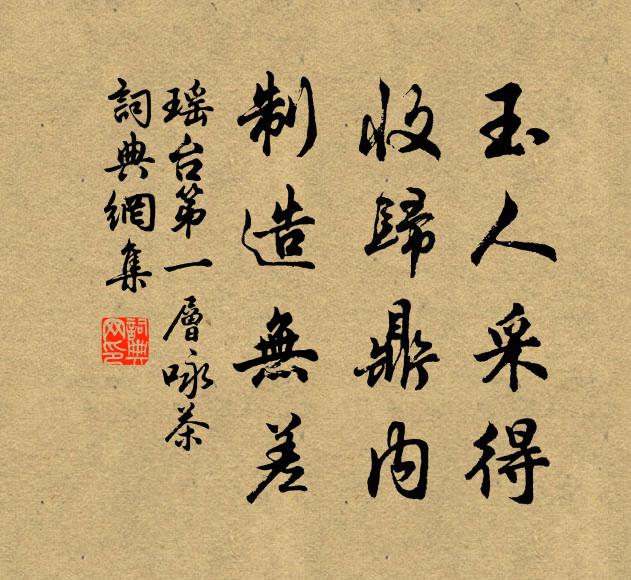 玉人采得
收歸鼎内
制造無差
瑶台第一層咏茶
詞典網集
詞典網印